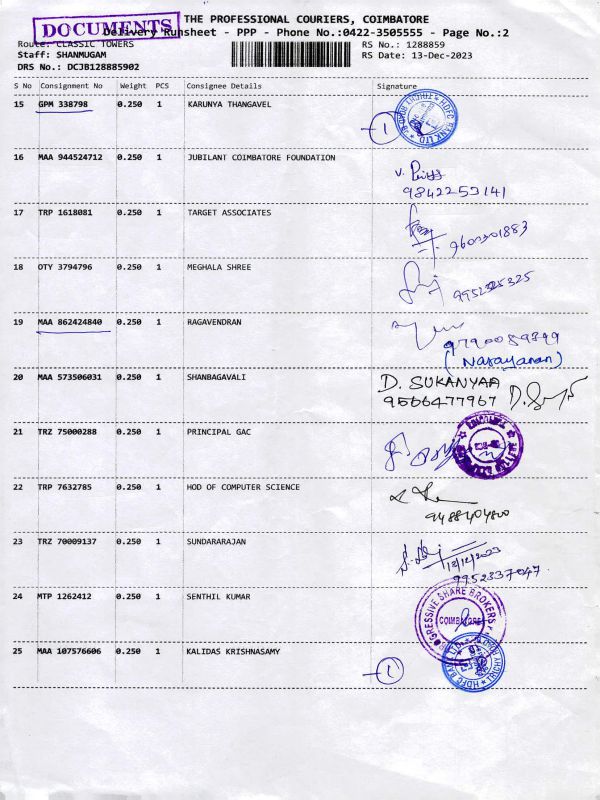 DOCUMENTS
THE PROFESSIONAL COURIERS, COIMBATORE
Delivery Runsheet - PPP - Phone No.:0422-3505555 - Page No.:2
Route: CLASSIC TOWERS
RS No.: 1288859
Staff: SHANMUGAM
RS Date: 13-Dec-2023
DRS No.: DCJB128885902
S No Consignment No Weight PCS Consignee Details Signature
15 GPM 338798 0.250 1 KARUNYA THANGAVEL
1
HDFC BANK LTD
16 MAA 944524712 0.250 1 JUBILANT COIMBATORE FOUNDATION
9842253141
17 TRP 1618081 0.250 1 TARGET ASSOCIATES
18 OTY 3794796 0.250 1 MEGHALA SHREE
19 MAA 862424840 0.250 1 RAGAVENDRAN
(Narayanan)
20 MAA 573506031 0.250 1 SHANBAGAVALI
D. SUKANYAA
9566477967
21 TRZ 75000288 0.250 1 PRINCIPAL GAC
22 TRP 7632785 0.250 1 HOD OF COMPUTER SCIENCE
23 TRZ 70009137 0.250 1 SUNDARARAJAN
12/12/2023
9952337047
24 MTP 1262412 0.250 1 SENTHIL KUMAR
SHARE BROKERS
COIMBATORE
25 MAA 107576606 0.250 1 KALIDAS KRISHNASAMY
1
HDFC BANK LTD